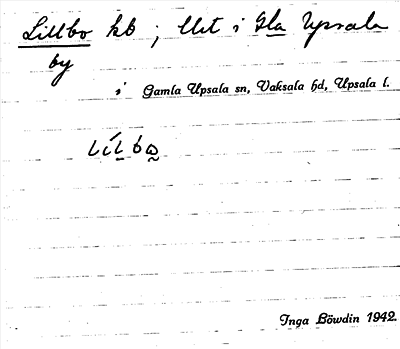 Lillbo hb ; Utt i Gla Upsala
by
i Gamla Upsala sn, Vaksala hd, Upsala l.
Inga Löwdin 1942.